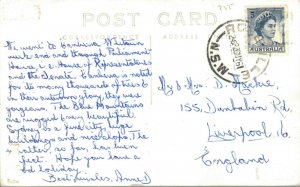 POST CARD
CORRESPONDENCE
ADDRESS
We went to Canberra Whitsun
week end and through Parliament
House i.e. House of Representatives
and the Senate. Canberra is noted
for its many thousands of trees &
in their autumn glory they were
gorgeous. The Blue Mountains
are rugged & very beautiful.
Sydney is a fine city, huge
buildings and nice shops. The
weather so far has been
perfect. Hope you have a
holiday.
Best wishes, Anne
Mr & Mrs. D.
155, Dunbabin Rd,
Liverpool 16.
England
AUSTRALIA
N.S.W.